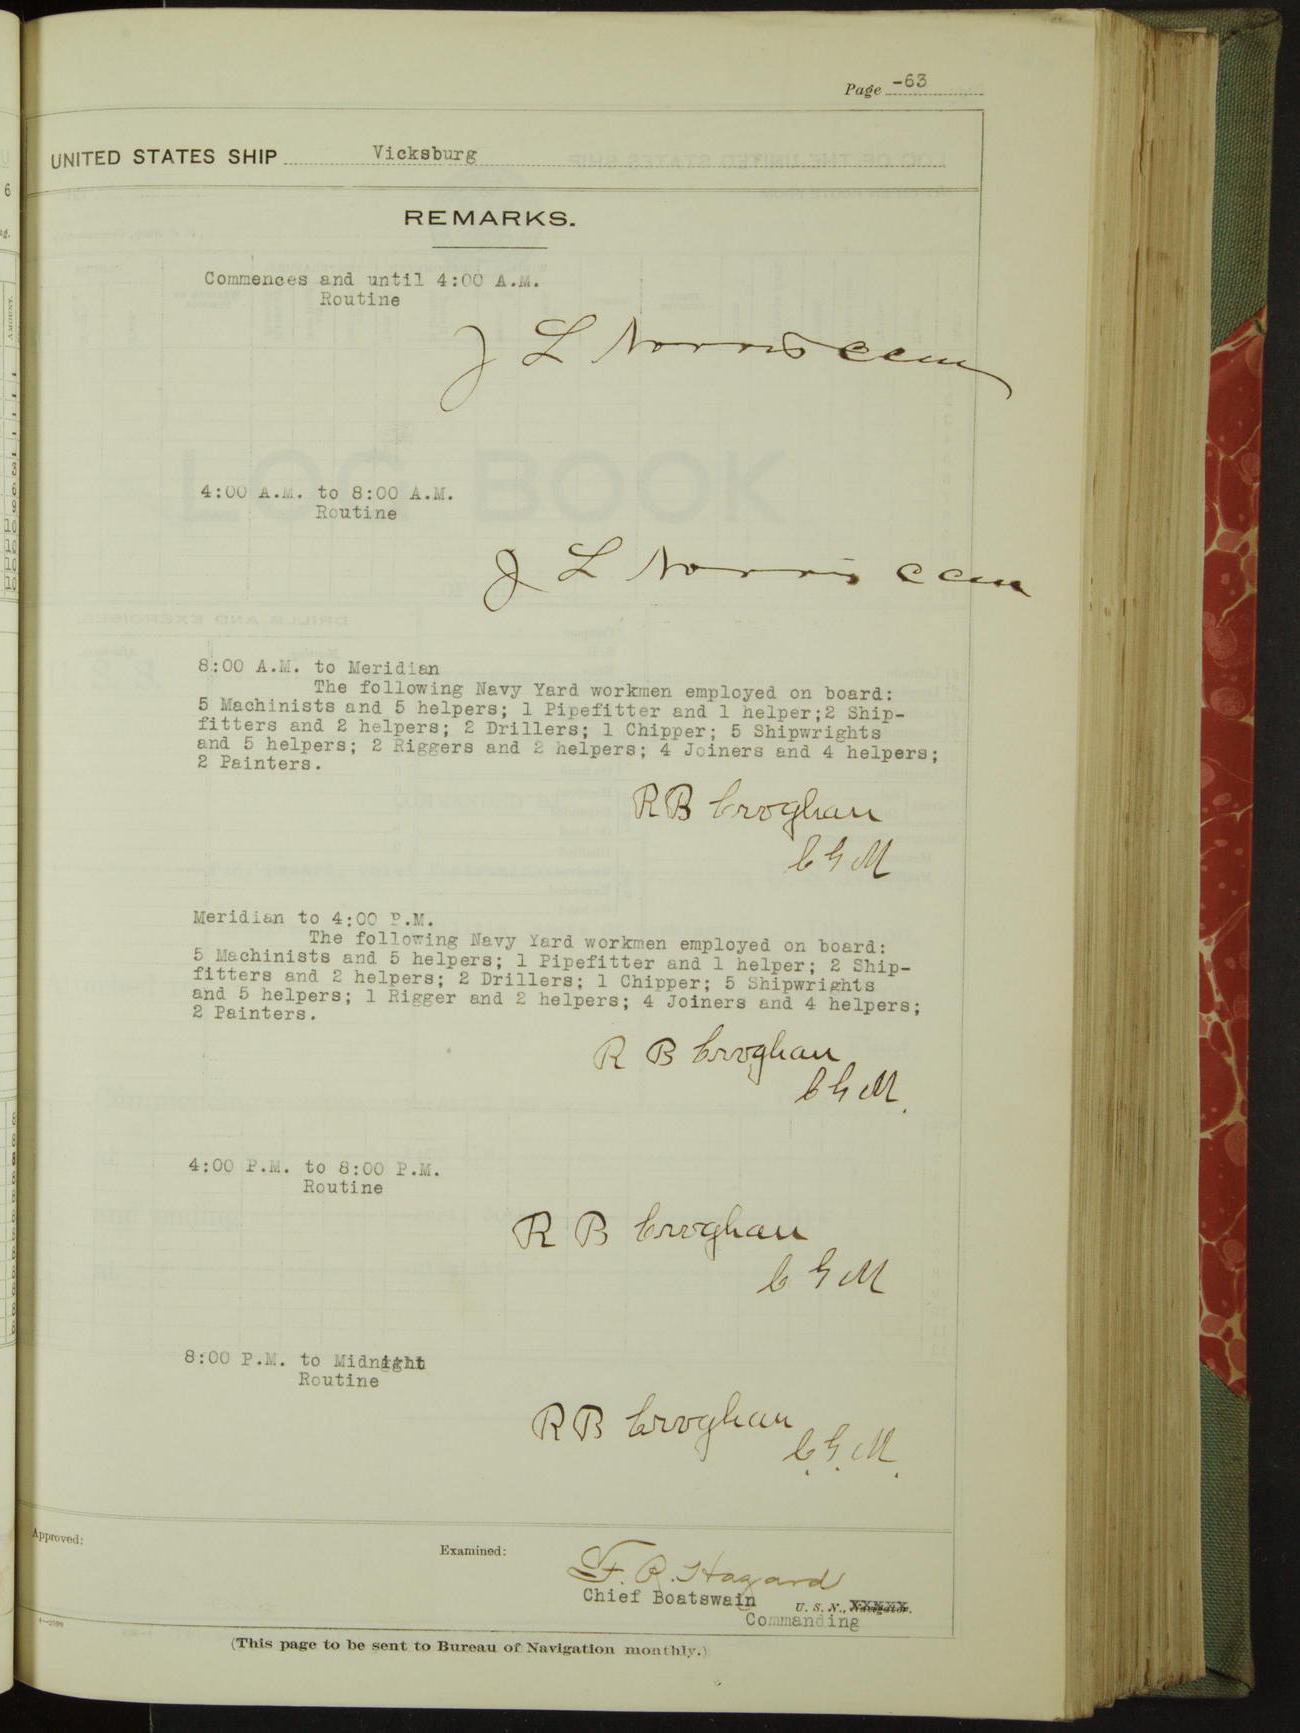 Page -63
UNITED STATES SHIP Vicksburg
REMARKS.
Commences and until 4:00 A.M.
Routine
J L Norris CCM
4:00 A.M. to 8:00 A.M.
Routine
J L Norris CCM
8:00 A.M. to Meridian
The following Navy Yard workmen employed on board:
5 Machinists and 5 helpers; 1 Pipefitter and 1 helper;2 Ship-
fitters and 2 helpers; 2 Drillers; 1 Chipper; 5 Shipwrights
and 5 helpers; 2 Riggers and 2 helpers; 4 Joiners and 4 helpers;
2 Painters.
R B Croghan
C G M
Meridian to 4:00 P.M.
The following Navy Yard workmen employed on board:
5 Machinists and 5 helpers; 1 Pipefitter and 1 helper; 2 Ship-
fitters and 2 helpers; 2 Drillers; 1 Chipper; 5 Shipwrights
and 5 helpers; 1 Rigger and 2 helpers; 4 Joiners and 4 helpers;
2 Painters.
R B Croghan
C G M.
4:00 P.M. to 8:00 P.M.
Routine
R B Croghan
C G M
8:00 P.M. to Midnight
Routine
R B Croghan
C. G. M.
Approved:
Examined:
F. R. Hazard
Chief Boatswain U. S. N., Navigator.
Commanding
(This page to be sent to Bureau of Navigation monthly.)